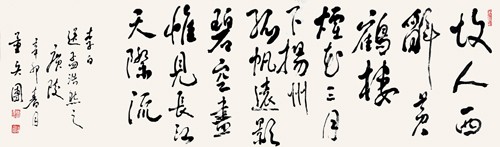 故人西
辭黄
鶴樓
煙花三月
下揚州
孤帆遠影
碧空盡
惟見長江
天際流
李白
送孟浩然之
廣陵
辛卯春月